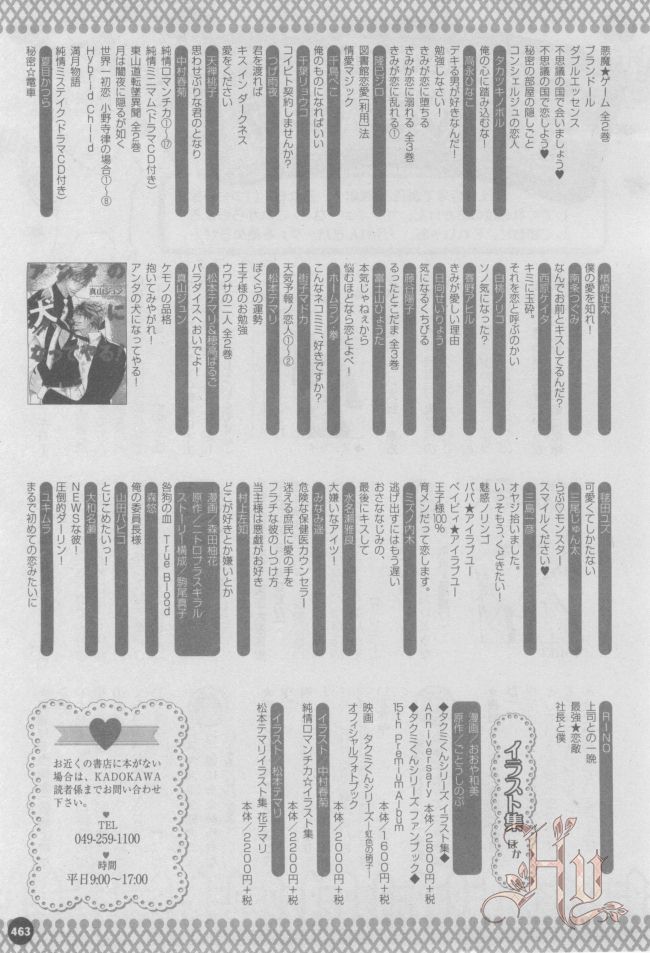 悪魔★ゲーム 全2巻
ブランドール
ダブルエッセンス
不思議の国で会いましょう♥
不思議の国で恋しよう♥
秘密の部屋の隠しごと
コンシェルジュの恋人
タカツキノボル
俺の心に踏み込むな!
高永ひなこ
デキる男が好きなんだ!
勉強しなさい!
きみが恋に堕ちる
きみが恋に溺れる 全3巻
きみが恋に乱れる①
隆巳ジロ
図書館恋愛[利用]法
情愛マジック
千鳥ぺこ
俺のものになればいい
千葉リョウコ
コイビト契約しませんか?
つげ雨夜
君を渡れば
キス イン ダークネス
愛をください
天禅桃子
思わせぶりな君のとなり
中村春菊
純情ロマンチカ①~⑰
純情ミニマム(ドラマCD付き)
東山道転墜異聞 全2巻
月は闇夜に隠るが如く
世界一初恋 小野寺律の場合①~⑧
Hybrid Child
満月物語
純情ミステイク(ドラマCD付き)
夏目かつら
秘密☆電車
楢崎壮太
僕の愛を知れ!
南条つぐみ
なんでお前とキスしてるんだ?
西原ケイタ
キミに玉砕。
それを恋と呼ぶのかい
白桃ノリコ
ソノ気になった?
春野アヒル
きみが愛しい理由
日向せいりょう
気になるくちびる
藤谷陽子
るったとこだま 全3巻
富士山ひょうた
本気じゃねぇから
悩むほどなら恋とよべ!
ホームラン・拳
こんなネコミミ、好きですか?
街子マドカ
天気予報ノ恋人①~②
松本テマリ
ぼくらの運勢
王子様のお勉強
ウワサの二人 全2巻
松本テマリ&穂高はるご
パラダイスへおいでよ!
真山ジュン
ケモノの品格
抱いてみやがれ!
アンタの犬になってやる!
アンタの
犬に
なってやる!
真山ジュン
毬田ユズ
可愛くてしかたない
三尾じゅん太
らぶ♡モンスター
スマイルください♥
三島一彦
オヤジ拾いました。
いっそもう、くどきたい!
魅惑ノリンゴ
パパ★アイラブユー
ベイビィ★アイラブユー
王子様100%
育メンだって恋します。
ミズノ内木
逃げ出すにはもう遅い
おさななじみの、
最後にキスして
水名瀬雅良
大嫌いなアイツ!
みなみ遥
危険な保健医カウンセラー
迷える庶民に愛の手を
フラチな彼のしつけ方
当主様は悪戯がお好き
村上左知
どこが好きとか嫌いとか
漫画/森田柚花
原作/ニトロプラスキラル
ストーリー構成/駒尾真子
咎狗の血 True Blood
森悠
俺の委員長様
山田パピコ
とじこめたいっ!
大和名瀬
NEWSな彼!
圧倒的ダーリン!
ユキムラ
まるで初めての恋みたいに
RINO
上司との一晩
最強★恋敵
社長と僕
イラスト集 ほか
漫画/おおや和美
原作/ごとうしのぶ
◆タクミくんシリーズ イラスト集◆
Anniversary 本体/2800円+税
◆タクミくんシリーズ ファンブック◆
15th Premium Album
本体/1600円+税
映画 タクミくんシリーズ/虹色の硝子!
オフィシャルフォトブック
本体/2000円+税
イラスト 中村春菊
純情ロマンチカ☆イラスト集
本体/2200円+税
イラスト 松本テマリ
松本テマリイラスト集 花テマリ
本体/2200円+税
お近くの書店に本がない
場合は、KADOKAWA
読者係までお問い合わせ
下さい。
♥
TEL
049-259-1100
♥
時間
平日9:00~17:00
Hy
463